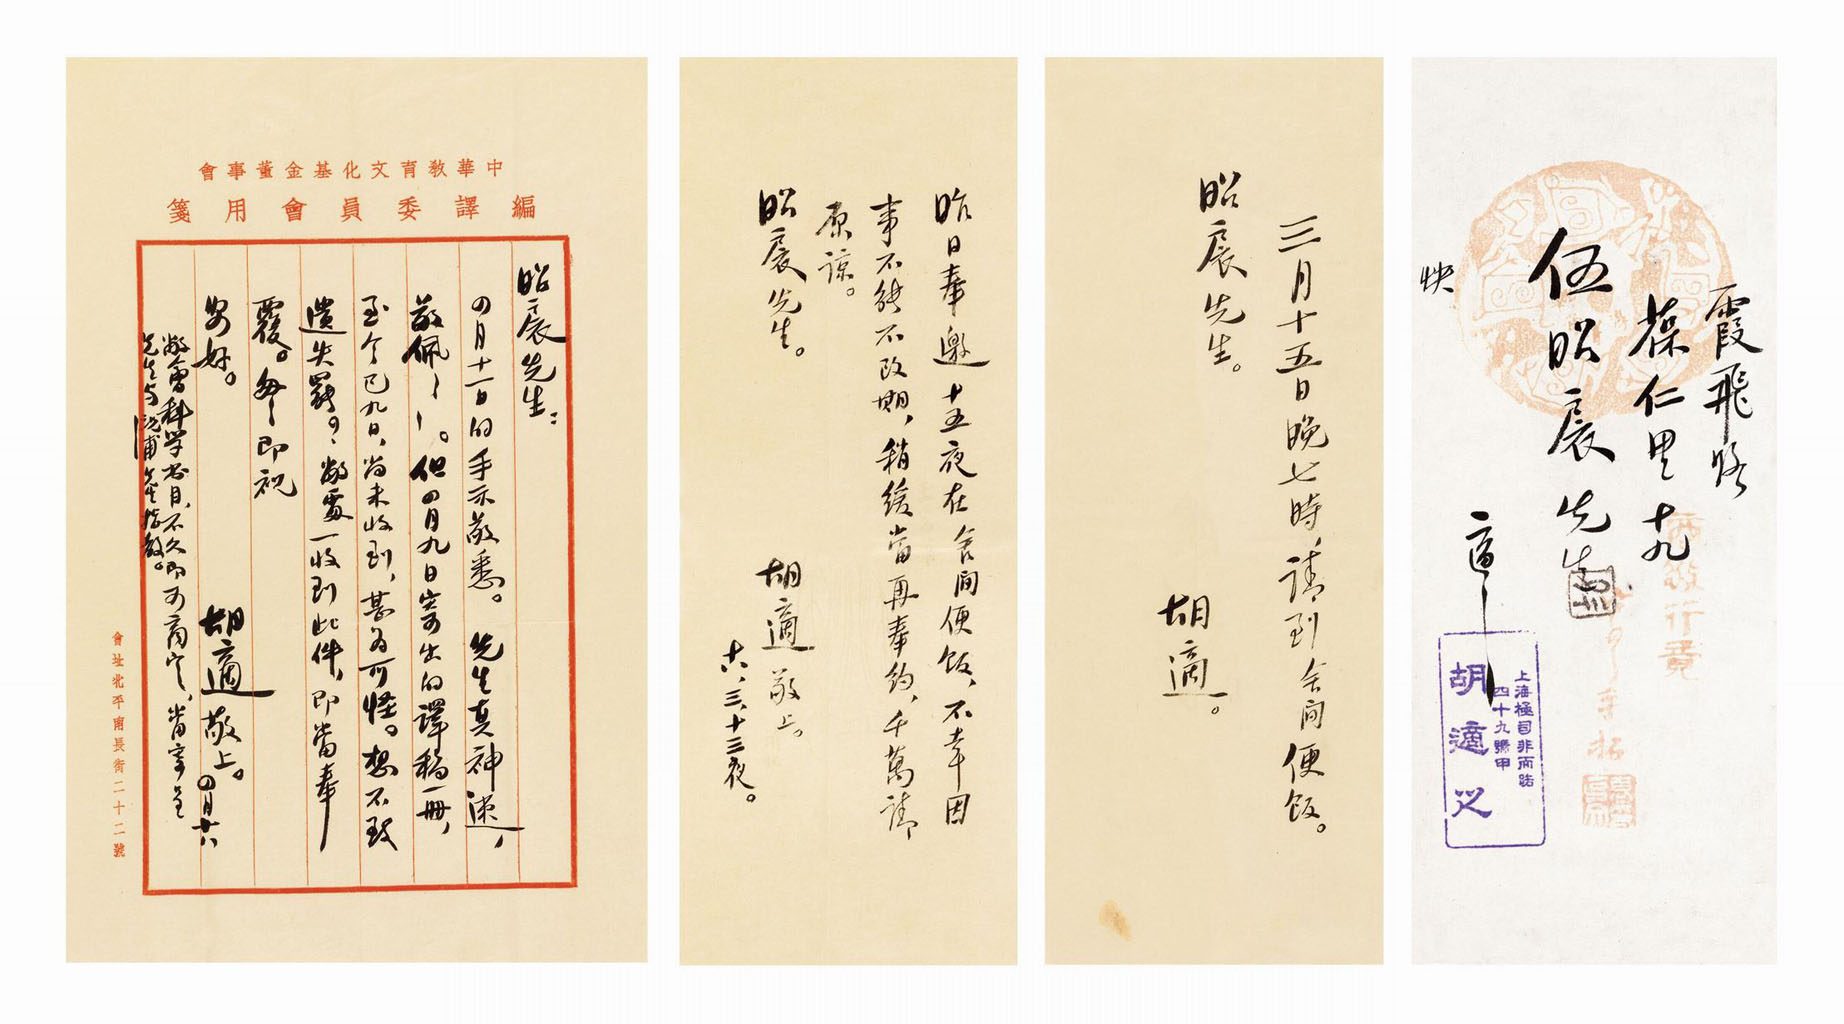 中華教育文化基金董事會
編譯委員會用箋
昭扆先生:
四月十一日的手示敬悉。先生真神速,
敬佩敬佩。但四月九日寄出的譯稿一冊,
至今已九日,尚未收到,甚為可怪。想不致
遺失罷?敝處一收到此件,即當奉
覆。匆匆即祝
安好。
胡適敬上。 四月十八
敝會科學書目,不久即可商定,當寄呈
先生與光甫先生指教。
會址北平南長街二十二號
昨日奉邀十五夜在舍間便飯,不幸因
事不能不改期,稍緩當再奉約,千萬請
原諒。
昭扆先生。
胡適敬上。
十六,三,十三夜。
三月十五日晚七時,請到舍間便飯。
昭扆先生。
胡適。
霞飛路
葆仁里十九
伍昭扆先生
適
快
上海極司非而路
四十九號甲
胡適之